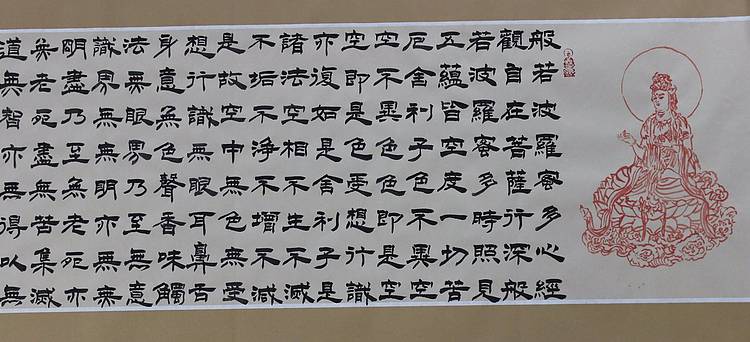 般若波羅蜜多心經
觀自在菩薩行深般
若波羅蜜多時照見
五蘊皆空度一切苦
厄舍利子色不異空
空不異色色即是空
空即是色受想行識
亦復如是舍利子是
諸法空相不生不滅
不垢不淨不增不減
是故空中無色無受
想行識無眼耳鼻舌
身意無色聲香味觸
法無眼界乃至無意
識界無無明亦無無
明盡乃至無老死亦
無老死盡無苦集滅
道無智亦無得以無